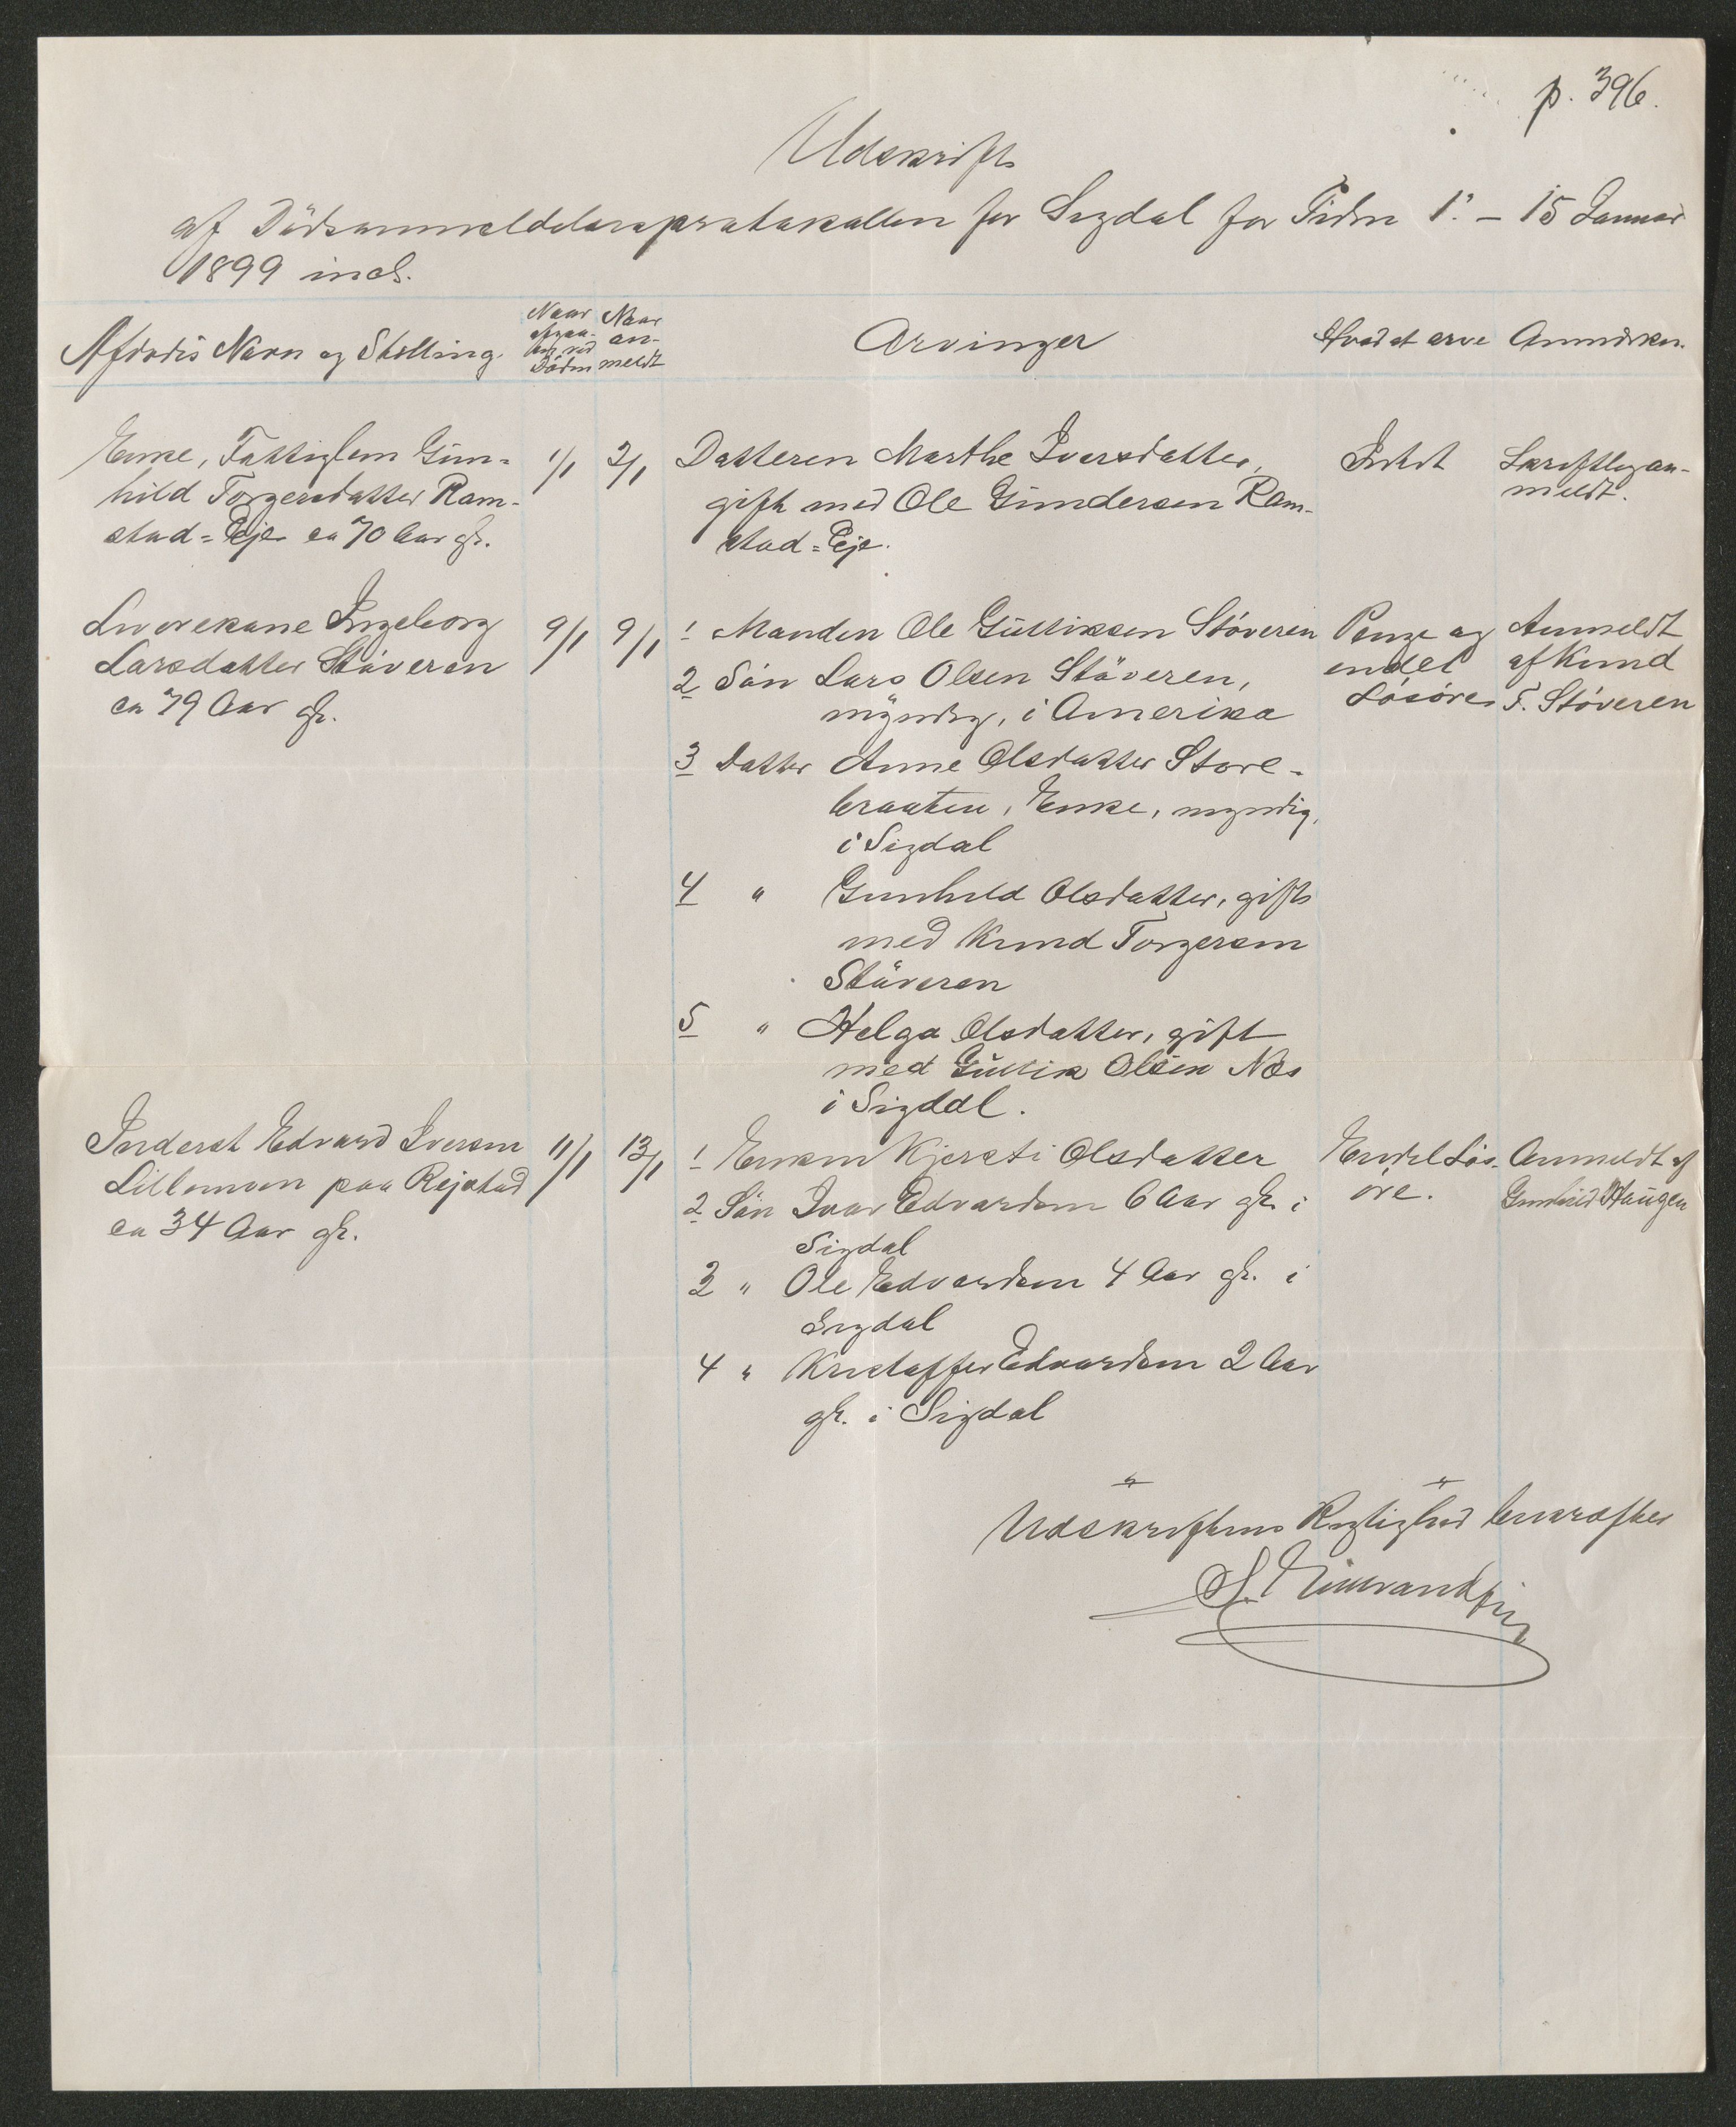 p. 396.
Udskrift
af Dödsanmeldelsesprotokollen for Sigdal for Tiden 1ste – 15 Januar
1899 incl.
Afdødes Navn og Stilling.
Naar
afgaa-
en ved
Döden
Naar
an-
meldt
Arvinger
Hvad at arve
Anmærkn.
Enke, Fattiglem Gun-
hild Torgersdatter Ram-
stad=Eje ca 70 Aar gl.
1/1
2/1
Datteren Marthe Iversdatter,
gift med Ole Gundersen Ram-
stad=Eje.
Intet
Skriftlig an-
meldt.
Ingeborg
Larsdatter Støveren
ca 79 Aar gl.
9/1
9/1
1 Manden Ole Gulliksen Støveren
2 Sön Lars Olsen Stöveren,
myndig, i Amerika
3 Datter Anne Olsdatter Store-
braaten, Enke, myndig,
i Sigdal
4 " Gunhild Olsdatter, gift
med Knud Torgersen
Stöveren
5 " Helga Olsdatter, gift
med Gullik Olsen Næs
i Sigdal.
Penge og
endel
Løsøre
Anmeldt
af Knud
T. Støveren
Inderst Edvard Iversen
Lillemoen paa Rejstad
ca 34 Aar gl.
11/1
13/1
1 Enken Kjersti Olsdatter
2 Sön Ivar Edvardsen 6 Aar gl. i
Sigdal
3 " Ole Edvardsen 4 Aar gl. i
Sigdal
4 " Kristoffer Edvardsen 2 Aar
gl. i Sigdal
Endel Løs-
øre.
Anmeldt af
Gunhild Haugen
" "
Udskriftens Rigtighed bekræftes